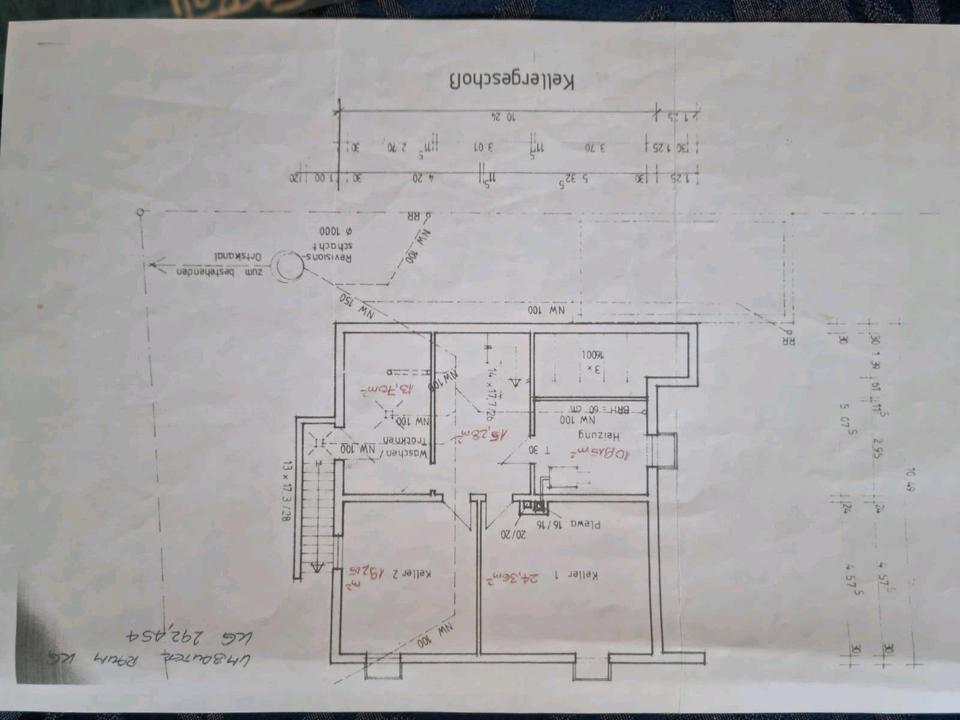 UMBAUTER RAUM KG
KG 292,454
NW 100
Keller 1
24,36 m²
Keller 2
19,215 m²
Plewa
16/16
20/20
13 × 17.3 /28
Heizung
10,815 m²
T 30
NW 100
BRH = 60 cm
15,28 m²
Waschen/
Trocknen
NW 100
NW 100
13,70 m²
NW 100
14 × 17,7/26
3 ×
1600 l
NW 100
NW 150
RR
zum bestehenden
Ortskanal
Revisions-
schacht
ø 1000
NW 100
RR
1 25
30
5 32⁵
11⁵
4 20
30
1 00
20
30
1 25
3 70
11⁵
3 01
11⁵
2 70
30
1 25
10 24
Kellergeschoß
30
4 57⁵
24
5 07⁵
30
30
4 57⁵
24
2 95
11⁵
61
1 39
30
10 49